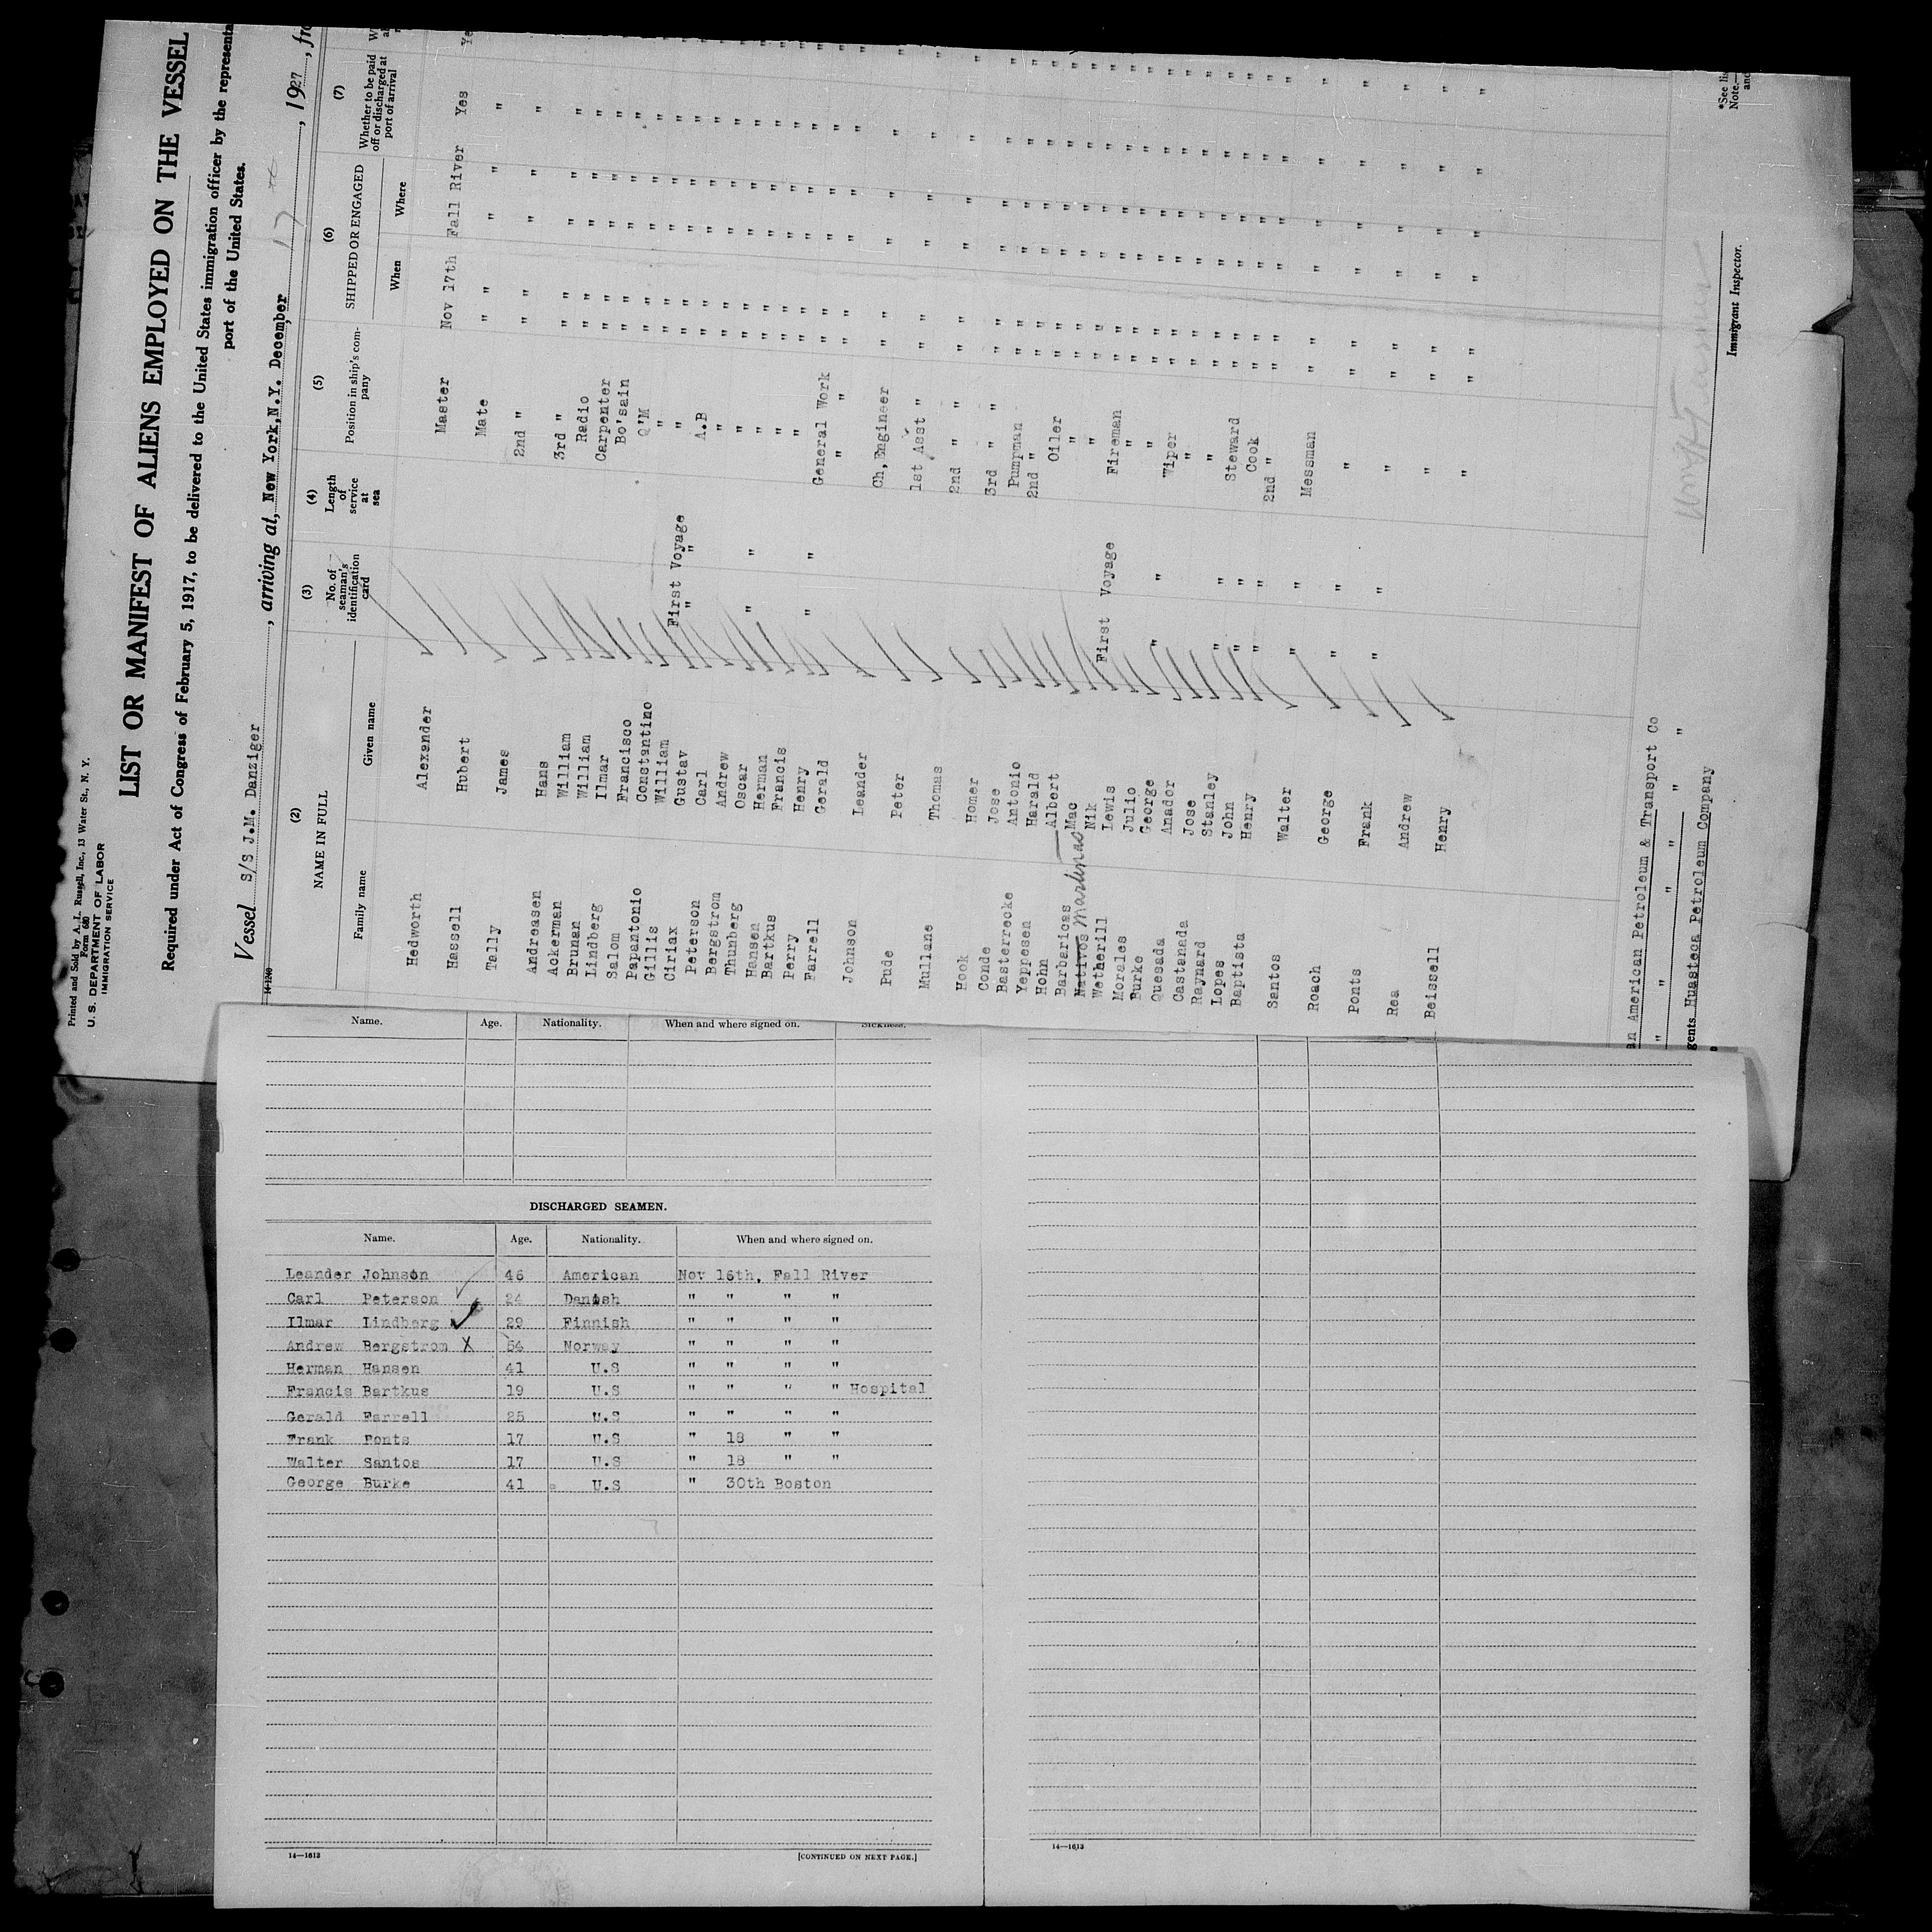 Printed and Sold by A. L. Russell, Inc., 13 Water St., N. Y.
Form 680
U. S. DEPARTMENT OF LABOR
IMMIGRATION SERVICE
LIST OR MANIFEST OF ALIENS EMPLOYED ON THE VESSEL
Required under Act of Congress of February 5, 1917, to be delivered to the United States immigration officer by the representa
port of the United States.
Vessel S/S J.M. Danziger, arriving at, New York, N.Y. December 17, 1927, fro
14-1240
(2) (3) (4) (5) (6) (7)
NAME IN FULL No. of seaman's identification card Length of service at sea Position in ship's company SHIPPED OR ENGAGED Whether to be paid off or discharged at port of arrival
Family name Given name When Where
Hedworth Alexander Master Nov 17th Fall River Yes Ye
Hassell Hubert Mate " " " " " "
Tally James 2nd " " " " " " "
Andreasen Hans 3rd " " " " " " "
Ackerman William Radio " " " " " "
Brunan William Carpenter " " " " " "
Lindberg Ilmar Bo'sain " " " " " "
Salom Francisco Q'M " " " " " "
Papantonio Constantino " " " " " " "
Gillis William First Voyage " " " " " " "
Ciriax Gustav " " A.B " " " " " "
Peterson Carl " " " " " " "
Bergstrom Andrew " " " " " " "
Thunberg Oscar " " " " " " " " "
Hansen Herman " " " " " " "
Bartkus Francis " " " " " " "
Perry Henry " " General Work " " " " " "
Farrell Gerald " " " " " " " "
Johnson Leander Ch, Engineer " " " " " "
Pude Peter 1st Asst " " " " " " "
Mullane Thomas 2nd " " " " " " " "
Hook Homer 3rd " " " " " " " "
Conde Jose Pumpman " " " " " "
Basterrecke Antonio 2nd " " " " " " "
Yeppesen Harald Oiler " " " " " "
Hohn Albert " " " " " " "
Barbaricas Mac " " " " " " "
Nativos Martinas Nik First Voyage Fireman " " " " " "
Wetherill Lewis " " " " " " "
Morales Julio " " " " " " "
Burke George " " Wiper " " " " " "
Quesada Anador " " " " " " "
Castanada Jose " " " " " " "
Raynard Stanley " " Steward " " " " " "
Lopes John " " Cook " " " " " "
Baptista Henry " " 2nd " " " " " " "
Santos Walter " " Messman " " " " " "
Roach George " " " " " " " " "
Ponts Frank " " " " " " " " "
Rea Andrew " " " " " " "
Beissell Henry " " " " " " "
an American Petroleum & Transport Co
" " " " "
gents Huasteca Petroleum Company
Immigrant Inspector.
*See lis
Note.—
and
Name. Age. Nationality. When and where signed on. Sickness.
DISCHARGED SEAMEN.
Name. Age. Nationality. When and where signed on.
Leander Johnson 46 American Nov 16th, Fall River
Carl Peterson 24 Danish " " " "
Ilmar Lindberg 29 Finnish " " " "
Andrew Bergstrom X 54 Norway " " " "
Herman Hansen 41 U.S " " " "
Francis Bartkus 19 U.S " " " " Hospital
Gerald Farrell 25 U.S " " " "
Frank Ponts 17 U.S " 18 " "
Walter Santos 17 U.S " 18 " "
George Burke 41 U.S " 30th Boston
14—1613
[CONTINUED ON NEXT PAGE.]
14—1613